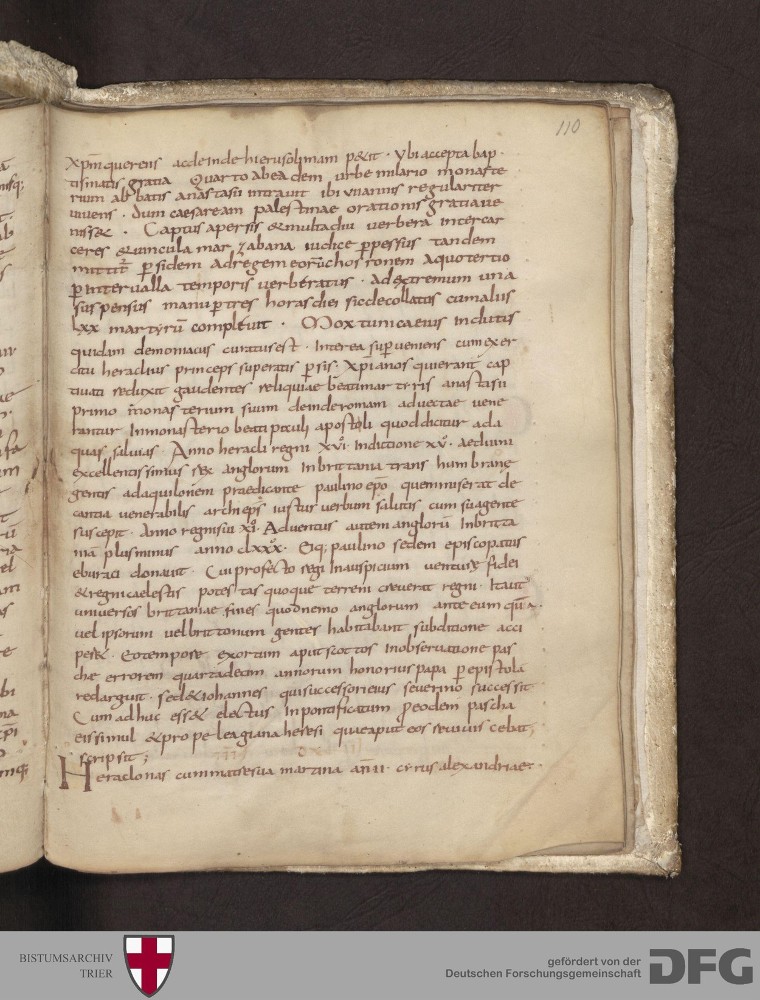 110
xp̄m querens ac deinde hierusolimam p&iit · Ybi accepta bap
tismatis gratia Quarto abeadem urbe miliario monaste
rium abbatis anastasii intrauit ibi vii annis regulariter
uiuens · dum caesaream palestinae orationis gratia ue
niss& · Captus a persis & multa diu verbera inter car
ceres & uincula marzabana iudice p̱pessus tandem
mittit̄ p̱sidem ad regem eorū chosronem a quo tertio
p̱ interualla temporis verberatus · ad extremum una
suspensus manu p̱ tres horas diei sic decollatus cum aliis
lxx martyrū compleuit · Mox tunica eius indutus
quidam demoniacus curatus est · Interea sup̱ueniens cum exer
citu heraclius princeps superatis p̱sis · xp̄ianos qui erant cap
tiuati reduxit gaudentes reliquiae beati martyris anastasii
primo monasterium suum deinde romam aduectae vene
rantur In monasterio beati pauli apostoli quod dicitur ad a
quas saluias · Anno heracli regni xvi · Indictione xv · aeduini
excellentissimus rex anglorum In brittania trans humbranę
gentis ad aquilonem praedicante paulino epo quem miserat de
cantia venerabilis archiep̄s iustus verbum salutis cum sua gente
suscepit · Anno regni sui xi · Aduentus autem anglorū In britta
nia plus minus anno clxxx · Eiq; paulino sedem episcopatus
eburaci donauit · Cui profecto regi In auspicium venturę fidei
& regni caelestis potestas quoque terreni creuerat regni · Ita ut
uniuersos brittaniae fines quod nemo anglorum ante eum
vel ipsorum vel brittonum gentes habitabant sub ditione acci
per& · Eo tempore exortum aput scottos In obseruatione pas
chę errorem quartadecim annorum honorius papa p̱ epistolā
redarguit · sed & iohannes qui successori eius seuerino successit
Cum adhuc ess& electus In pontificatum p̱ eodem pascha
eis simul & pro pelagiana heresi quae aput eos reuiuiscebat
scripsit ;
Heraclonas cum matre sua martina ann · ii · cyrus alexandriae ·
BISTUMSARCHIV
TRIER
gefördert von der
Deutschen Forschungsgemeinschaft
DFG